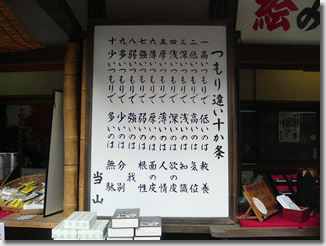 つもり違い十か条
一 高いつもりで 低いのは 教養
二 低いつもりで 高いのは 気位
三 深いつもりで 浅いのは 知識
四 浅いつもりで 深いのは 欲の皮
五 厚いつもりで 薄いのは 人情
六 薄いつもりで 厚いのは 面の皮
七 強いつもりで 弱いのは 根性
八 弱いつもりで 強いのは 我
九 多いつもりで 少いのは 分別
十 少いつもりで 多いのは 無駄
当山
絵